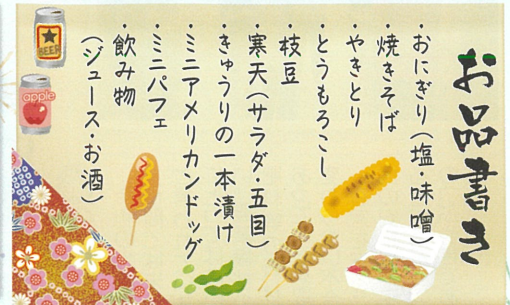 お品書き
・おにぎり(塩・味噌)
・焼きそば
・やきとり
・とうもろこし
・枝豆
・寒天(サラダ・五目)
・きゅうりの一本漬け
・ミニアメリカンドッグ
・ミニパフェ
・飲み物
(ジュース・お酒)
BEER
apple